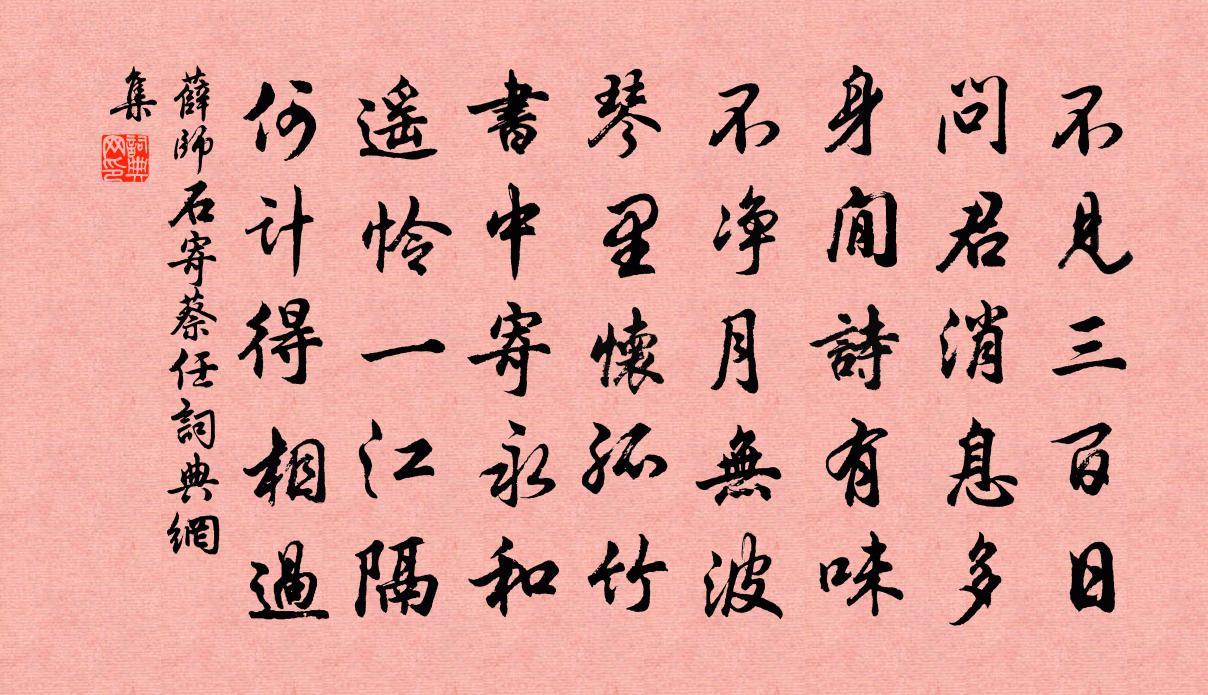 不見三百日
問君消息多
身閒詩有味
不凈月無波
琴里懷孤竹
書中寄永和
遥怜一江隔
何计得相過
薛師石寄蔡任詞典網
集
詞典網印